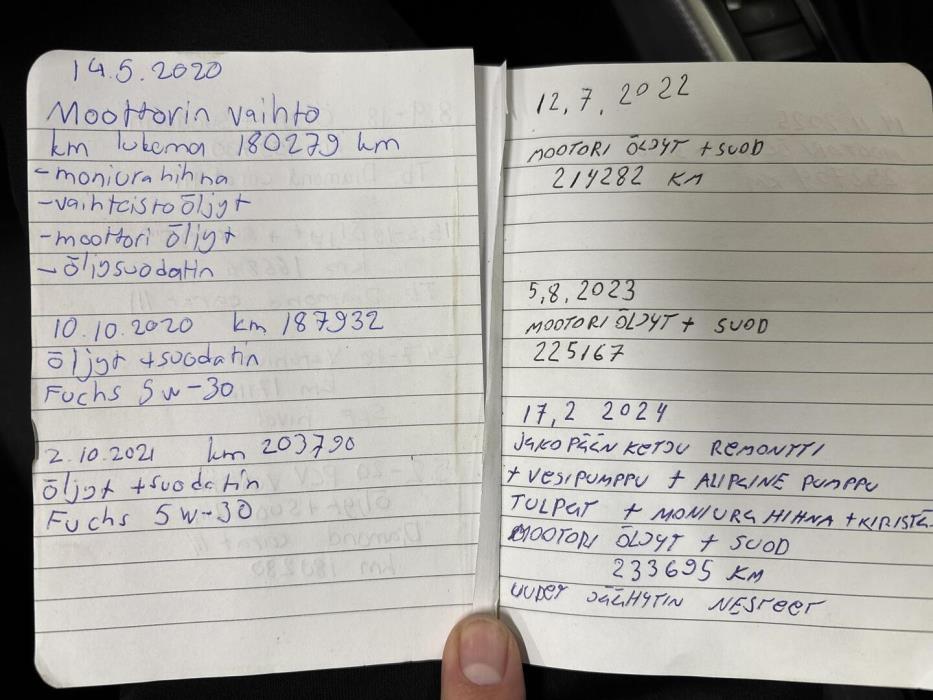 14.5.2020
Moottorin vaihto
km lukema 180279 km
- moniurahihna
- vaihteistoöljyt
- moottori öljyt
- öljysuodatin
10.10.2020 km 187932
öljyt + suodatin
Fuchs 5w-30
2.10.2021 km 203790
öljyt + suodatin
Fuchs 5w-30
12,7,2022
MOOTORI ÖLJYT + SUOD
214282 KM
5,8,2023
MOOTORI ÖLJYT + SUOD
225167
17,2 2024
JAKOPÄÄN KETJU REMONTTI
+ VESIPUMPPU + ALIPAINE PUMPPU
TULPAT + MONIURA HIHNA + KIRISTÄ.
MOOTORI ÖLJYT + SUOD
233695 KM
UUDET JÄÄHYTIN NESTEET